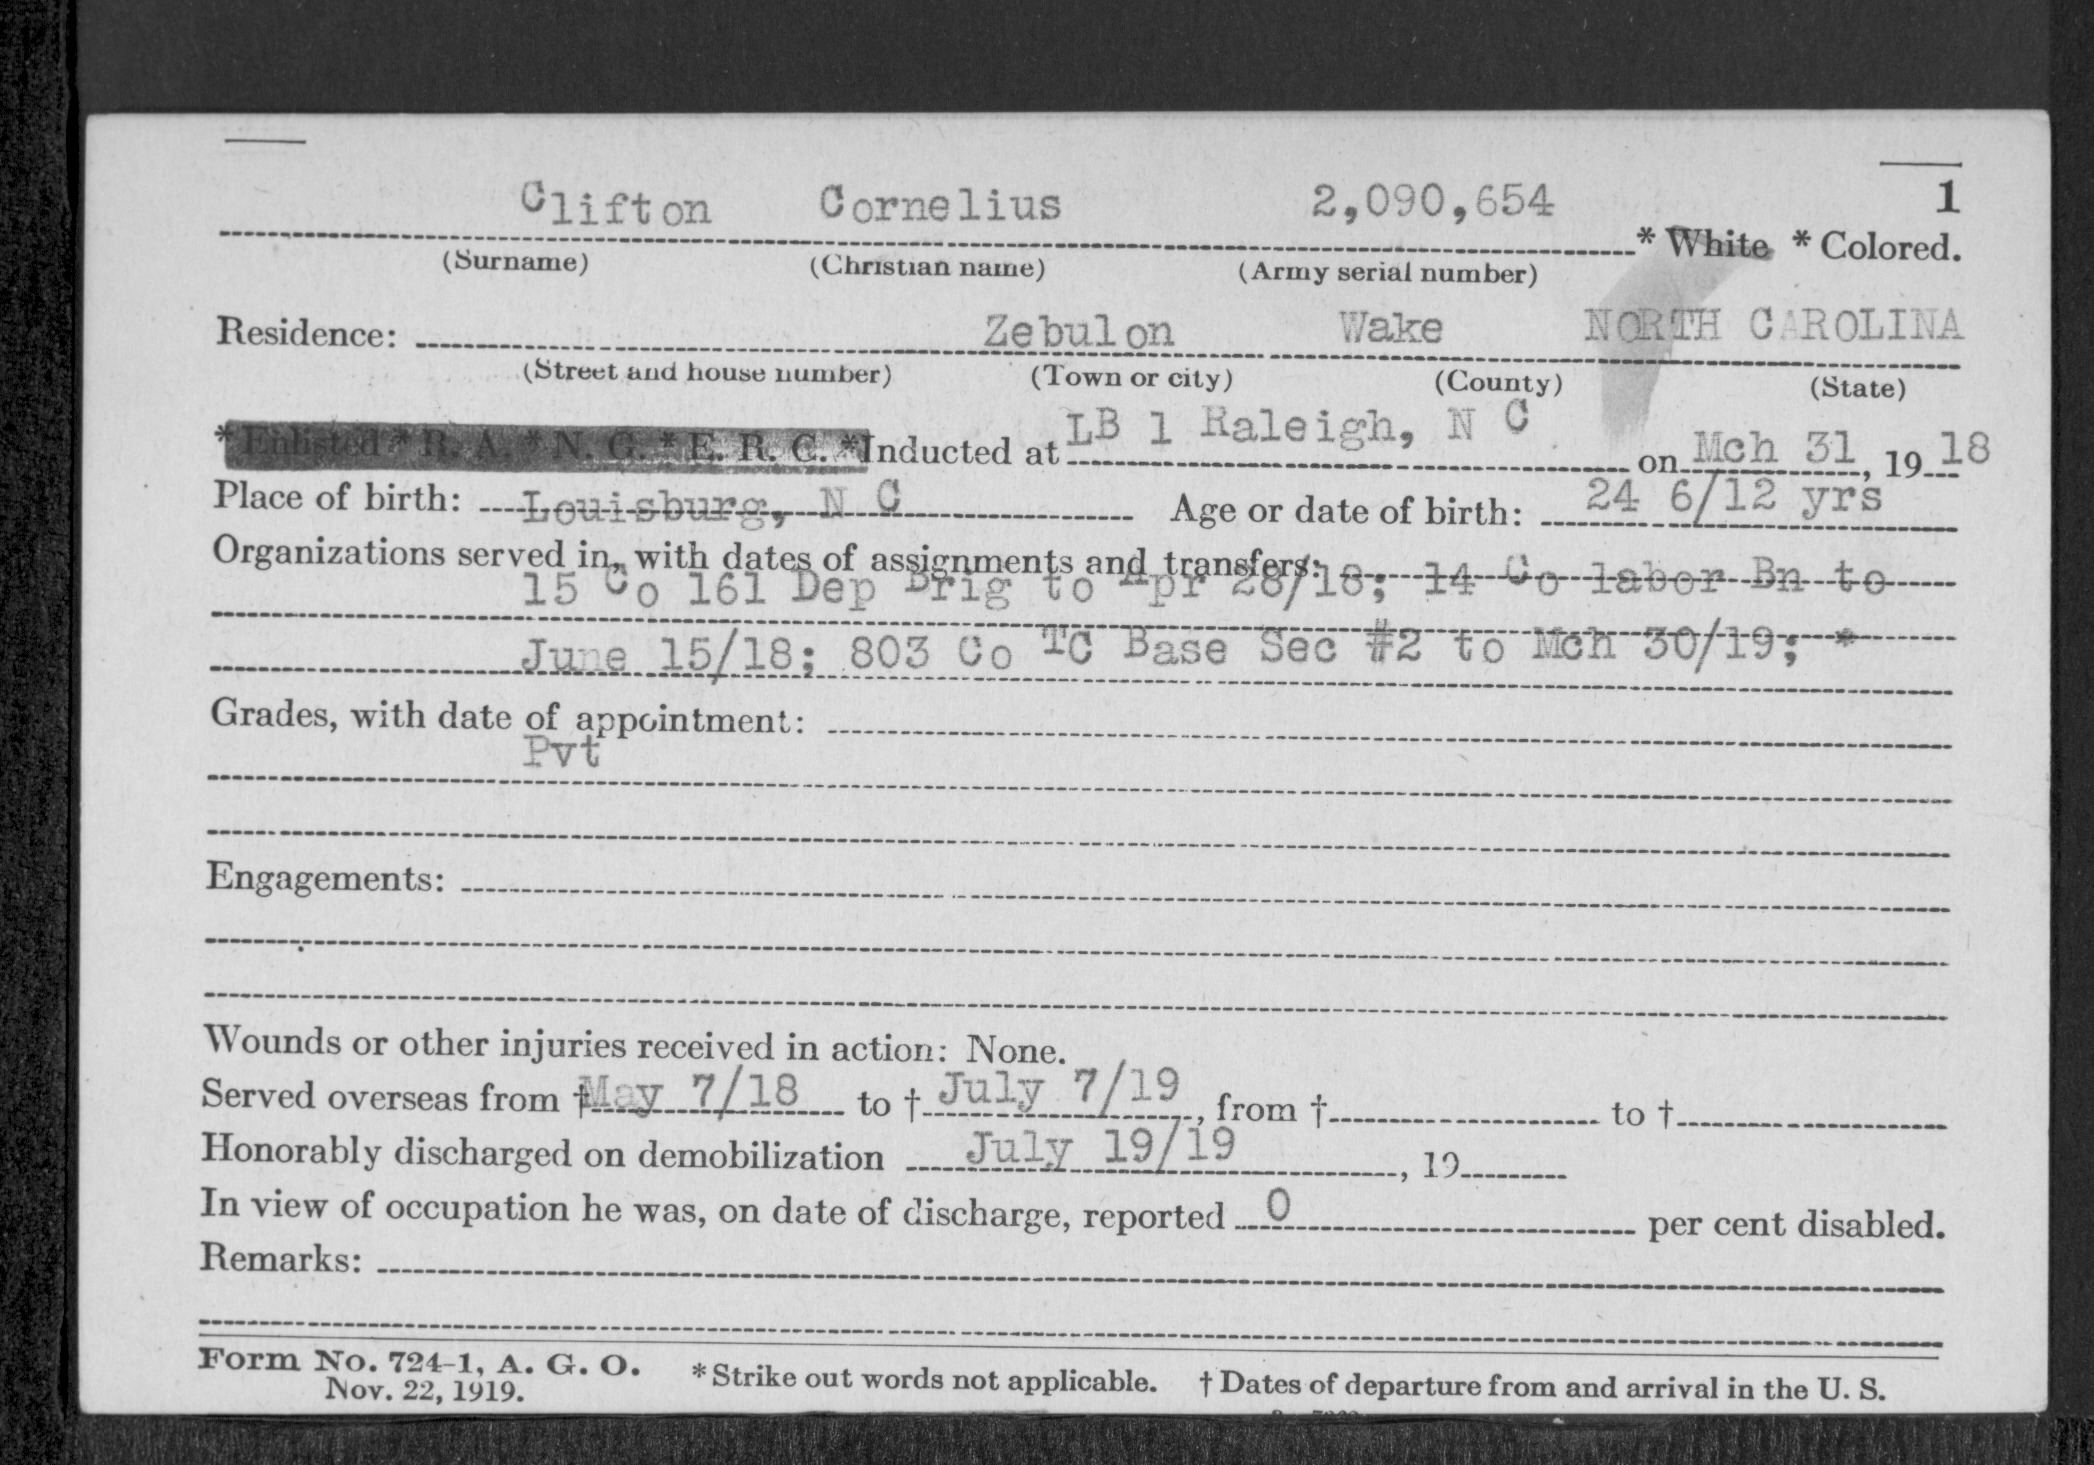 1
Clifton Cornelius 2,090,654 * White * Colored.
(Surname) (Christian name) (Army serial number)
Residence: Zebulon Wake NORTH CAROLINA
(Street and house number) (Town or city) (County) (State)
*Enlisted *R. A. *N. G. *E. R. C. *Inducted at LB 1 Raleigh, N C on Mch 31, 1918
Place of birth: Louisburg, N C Age or date of birth: 24 6/12 yrs
Organizations served in, with dates of assignments and transfers:
15 Co 161 Dep Brig to Apr 28/18; 14 Co labor Bn to
June 15/18; 803 Co TC Base Sec #2 to Mch 30/19; *
Grades, with date of appointment:
Pvt
Engagements:
Wounds or other injuries received in action: None.
Served overseas from †May 7/18 to † July 7/19, from † to †
Honorably discharged on demobilization July 19/19, 19
In view of occupation he was, on date of discharge, reported 0 per cent disabled.
Remarks:
Form No. 724-1, A. G. O. *Strike out words not applicable. † Dates of departure from and arrival in the U. S.
Nov. 22, 1919.